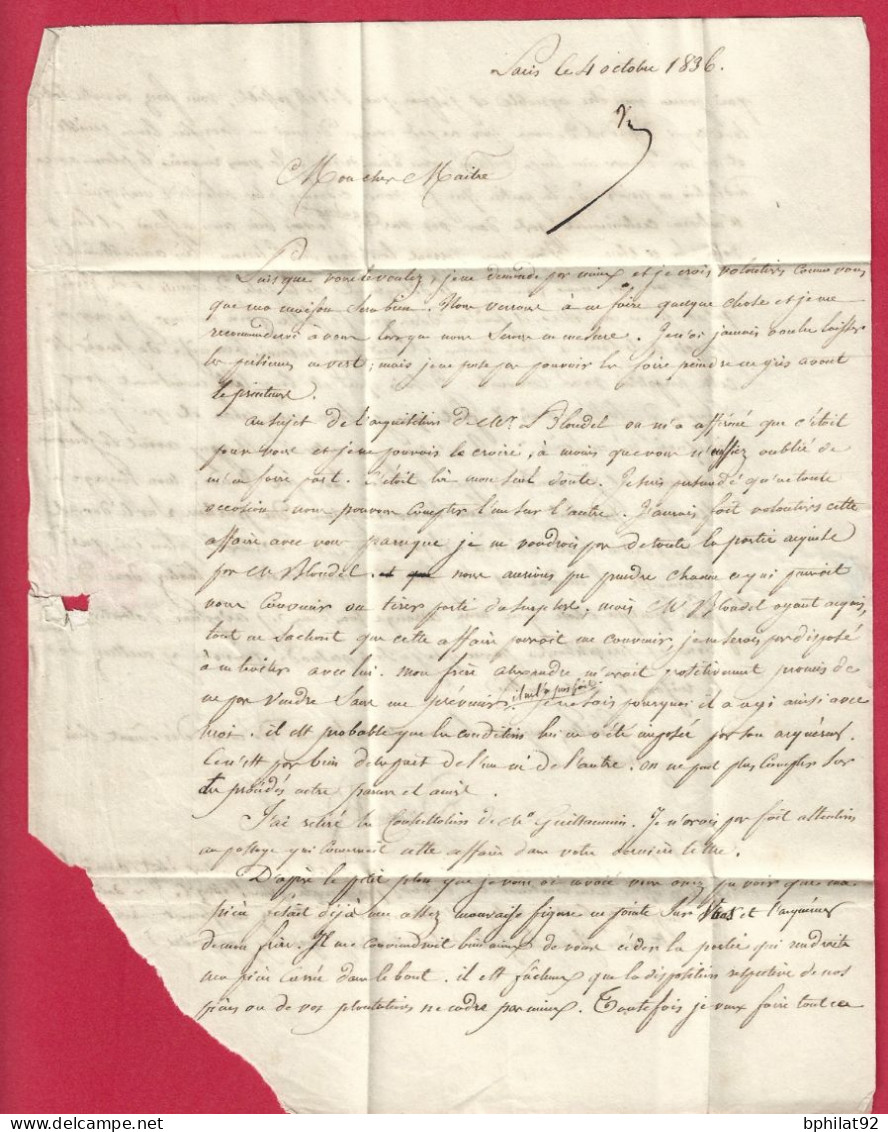 Paris le 4 octobre 1836.
Mon cher Maitre
Puis que vous le voulez, je ne demande pas mieux et je crois volontiers comme vous
que ma maison sera bien. Nous verrons à en faire quelque chose et je me
recommanderai à vous lorsque nous serons en mesure. Je n'ai jamais voulu laisser
les persiennes en vert; mais je ne pense pas pouvoir les faire peindre en gris avant
le printems.
au sujet de l'acquisition de Mr. Blondel on m'a affirmé que c'était
pour vous et je ne pouvais le croire, à moins que vous n'eussiez oublié de
m'en faire part. C'était là mon seul doute. Je suis persuadé qu'en toute
occasion nous pouvons compter l'un sur l'autre. J'aurais fait volontiers cette
affaire avec vous parceque je ne voudrois pas de toute la partie acquise
par Mr Blondel. nous aurions pu prendre chacun ce qui pouvoit
nous convenir ou tirer parti du surplus, mais Mr Blondel ayant acquis,
tout en sachant que cette affaire pouvoit me convenir, je ne serois pas disposé
à en traiter avec lui. mon frère alexandre m'avait positivement promis de
ne pas vendre sans me prévenir. il ne l'a pas fait. je ne sais pourquoi il a agi ainsi avec
moi. il est probable que la condition lui en a été imposée par son acquéreur.
Ce n'est pas bien de la part de l'un ni de l'autre. on ne peut plus compter sur
les procédés entre parens et amis.
J'ai retiré la Consultation de Mr Guillaumin. Je n'avais pas fait attention
au passage qui concernoit cette affaire dans votre dernière lettre.
D'après le petit plan que je vous ai envoyé vous avez pu voir que ma
pièce faisait déjà une assez mauvaise figure en pointe sur vous et l'acquéreur
de mon frère. Il me conviendroit bien mieux de vous céder la partie qui rendroit
ma pièce carrée dans le bout. il est fâcheux que la disposition respective de nos
pièces ou de vos plantations ne cadre pas mieux. Toutefois je veux faire tout ce
bphilat92